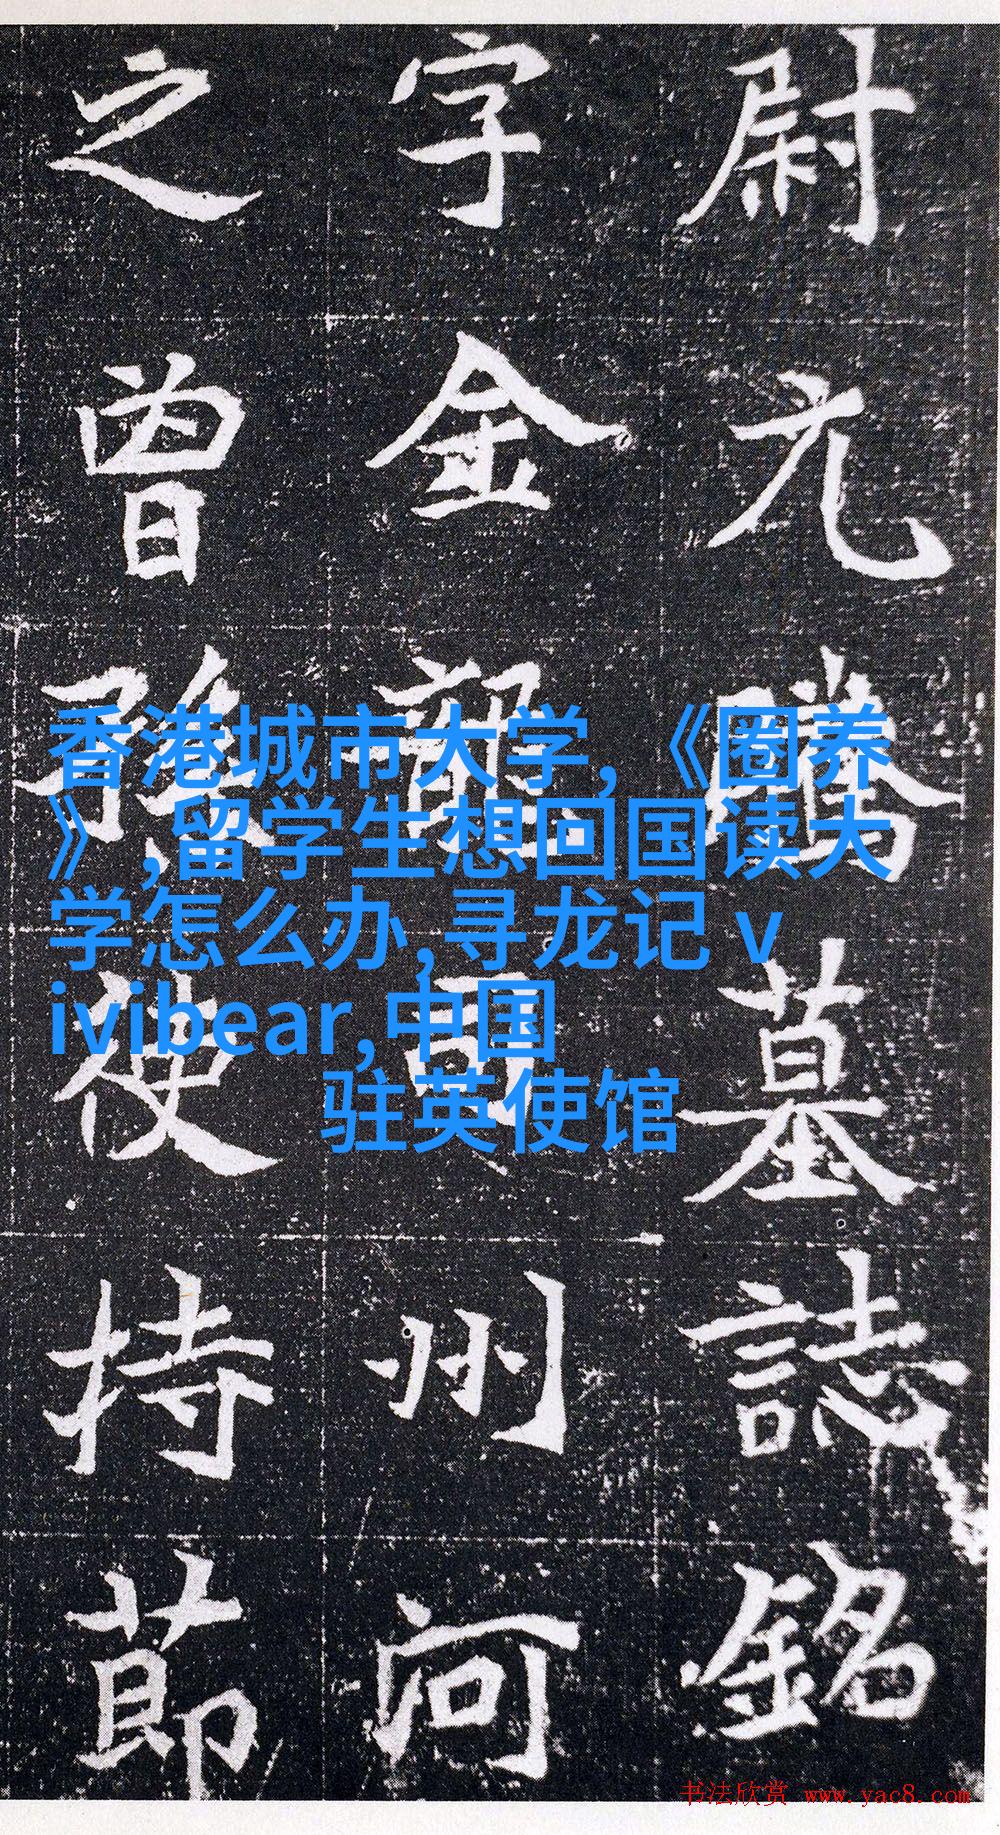 尉元騰墓誌銘
字金龍司州河
之曾孫使持節
香港城市大学,《圈养
》,留学生想回国读大
学怎么办,寻龙记 v
ivibear,中国
驻英使馆
书法欣赏 www.yac8.com